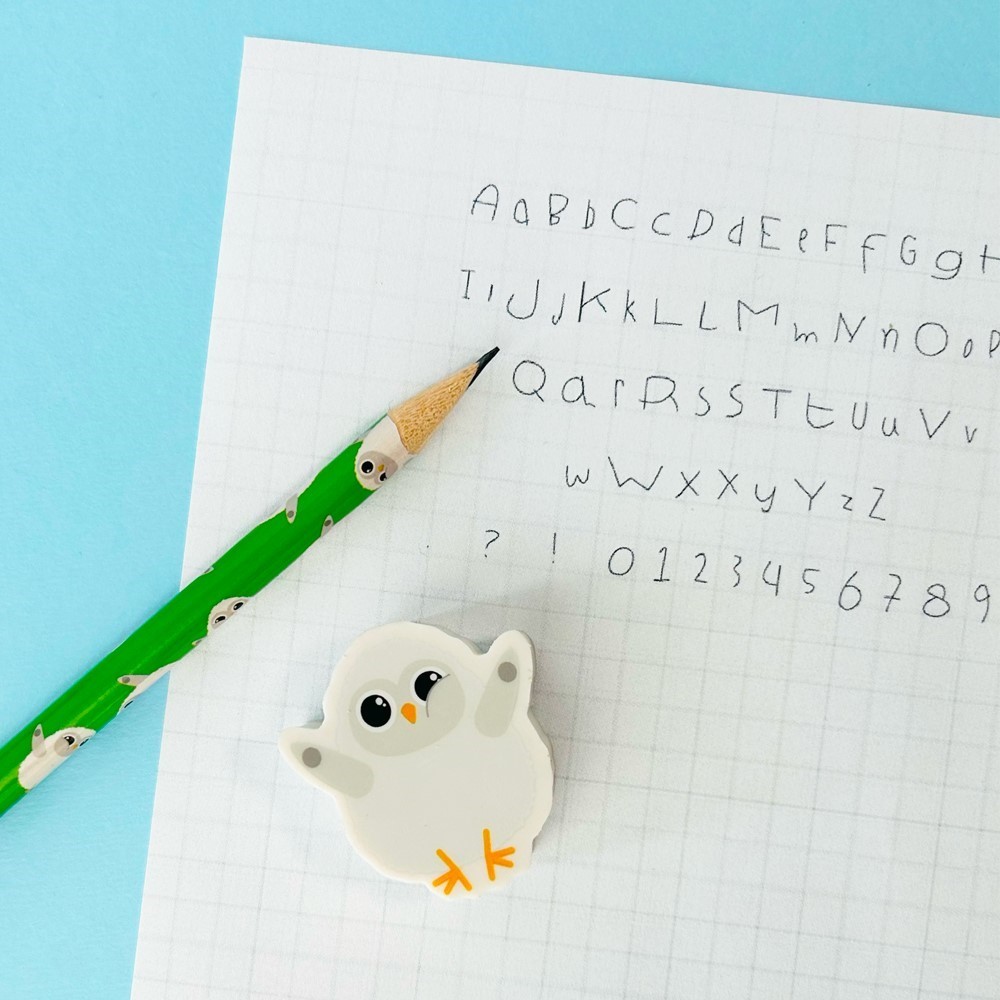 A a B b C c D d E e F f G g H
I i J j K k L L M m N n O o P
Q a r R s S T t U u V v
w W X X y Y z Z
. ? ! 0 1 2 3 4 5 6 7 8 9